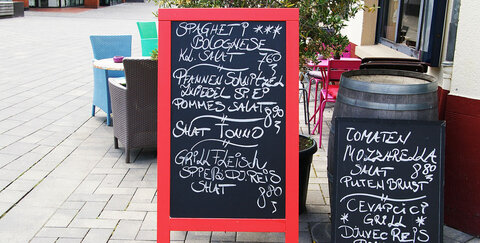 SPAGHETTI
BOLOGNESE
Kl. SALAT 7.60
PFANNEN Schnitzel
ZWIEBEL SP. EI
POMMES SALAT 8.90
SALAT TONNO
Grill Fleisch
DJ. REIS
SALAT 8.80
TOMATEN
MOZZARELLA
SALAT
PUTENBRUST
CEVAPCICI
GRILL
DJUVEC REIS